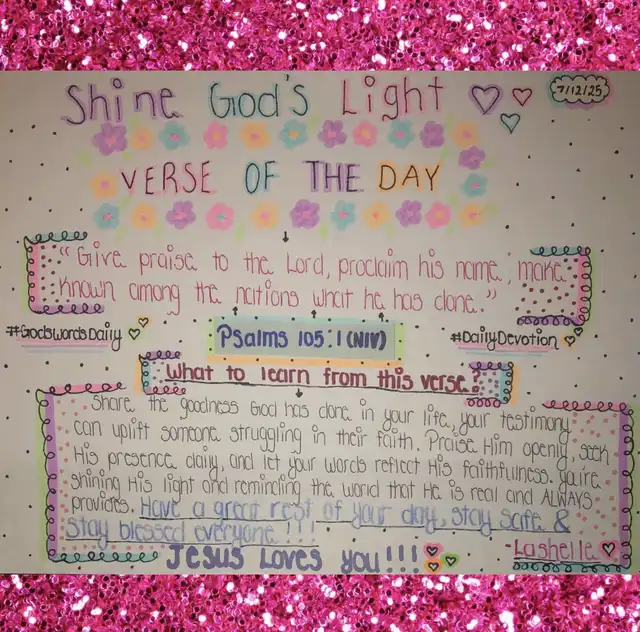 Shine God's Light
7/12/25
VERSE OF THE DAY
"Give praise to the Lord, proclaim his name; make
known among the nations what he has done."
#GodsWordsDaily
Psalms 105:1 (NIV)
#DailyDevotion
What to learn from this verse?
Share the goodness God has done in your life, your testimony
can uplift someone struggling in their faith. Praise Him openly, seek
His presence daily, and let your words reflect His faithfulness. You're
shining His light and reminding the world that He is real and ALWAYS
provides. Have a great rest of your day, stay safe &
stay blessed everyone!!!
Jesus Loves you!!!
-Lashelle